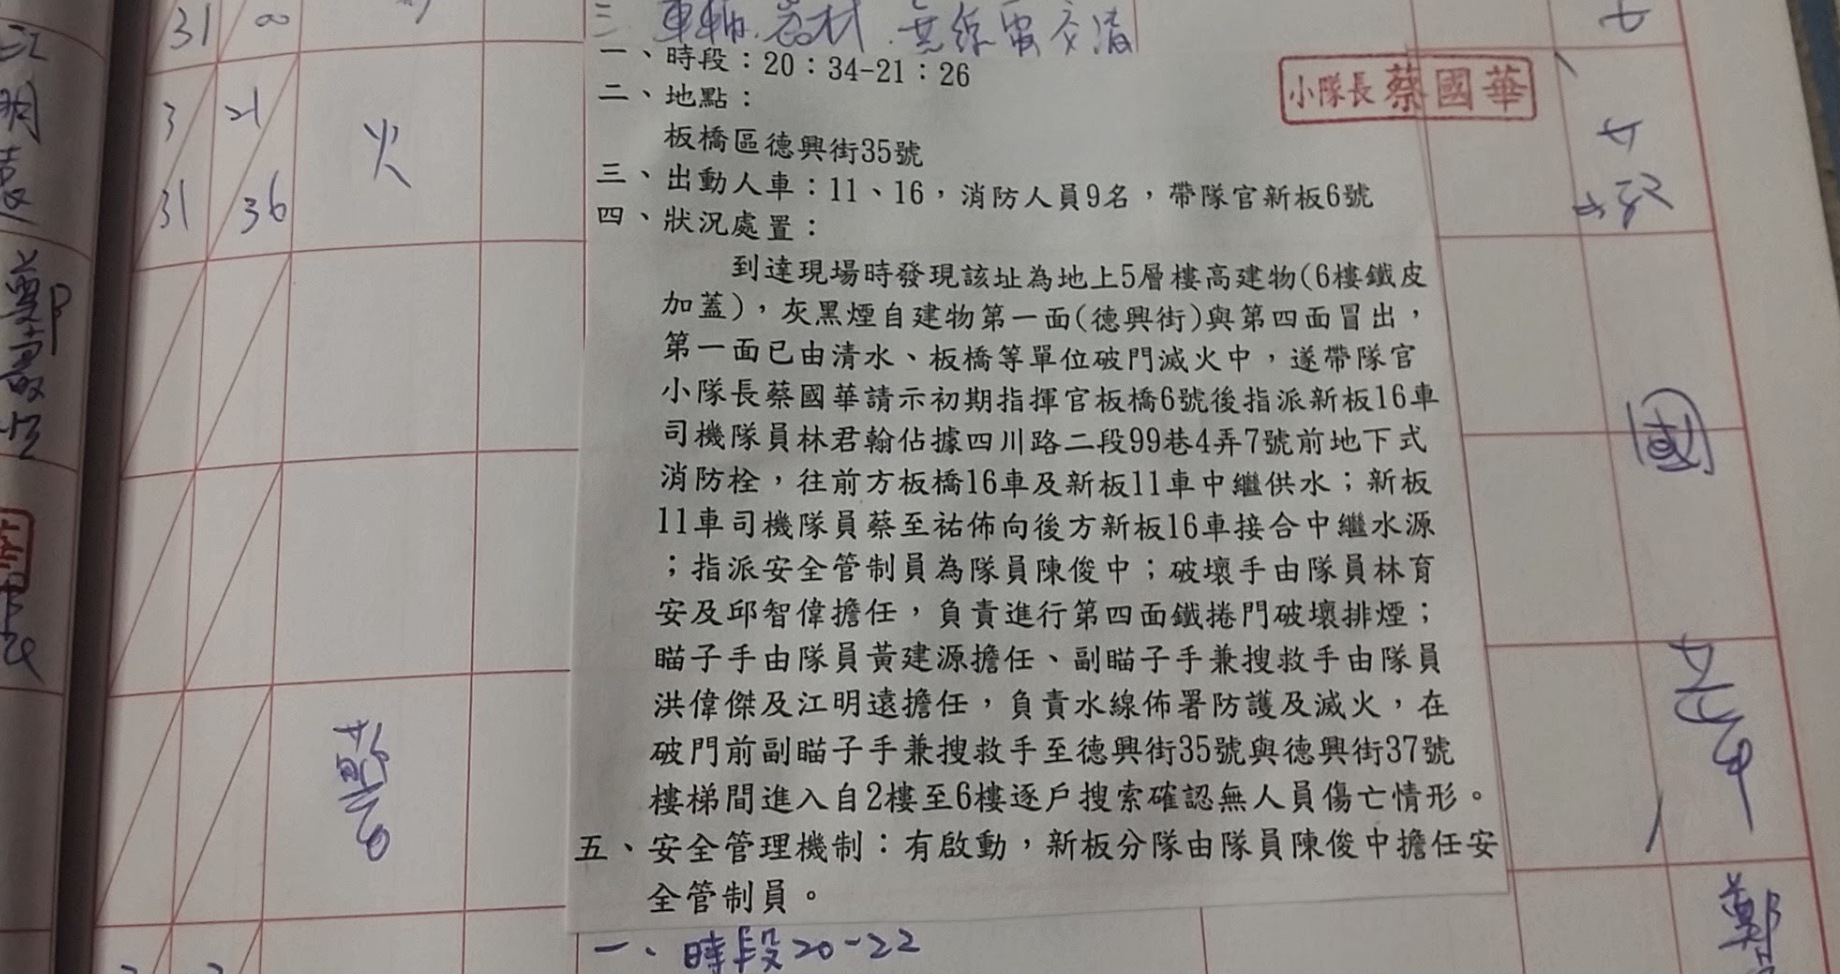 31 00
三、車輛.器材.無線電交清
一、時段：20：34-21：26
小隊長蔡國華
二、地點：
3 21
火
板橋區德興街35號
三、出動人車：11、16，消防人員9名，帶隊官新板6號
31 36
四、狀況處置：
到達現場時發現該址為地上5層樓高建物(6樓鐵皮
加蓋)，灰黑煙自建物第一面(德興街)與第四面冒出，
第一面已由清水、板橋等單位破門滅火中，遂帶隊官
小隊長蔡國華請示初期指揮官板橋6號後指派新板16車
司機隊員林君翰佔據四川路二段99巷4弄7號前地下式
消防栓，往前方板橋16車及新板11車中繼供水；新板
11車司機隊員蔡至祐佈向後方新板16車接合中繼水源
；指派安全管制員為隊員陳俊中；破壞手由隊員林育
安及邱智偉擔任，負責進行第四面鐵捲門破壞排煙；
瞄子手由隊員黃建源擔任、副瞄子手兼搜救手由隊員
洪偉傑及江明遠擔任，負責水線佈署防護及滅火，在
破門前副瞄子手兼搜救手至德興街35號與德興街37號
樓梯間進入自2樓至6樓逐戶搜索確認無人員傷亡情形。
五、安全管理機制：有啟動，新板分隊由隊員陳俊中擔任安
全管制員。
國
江明遠
鄭
一、時段20-22